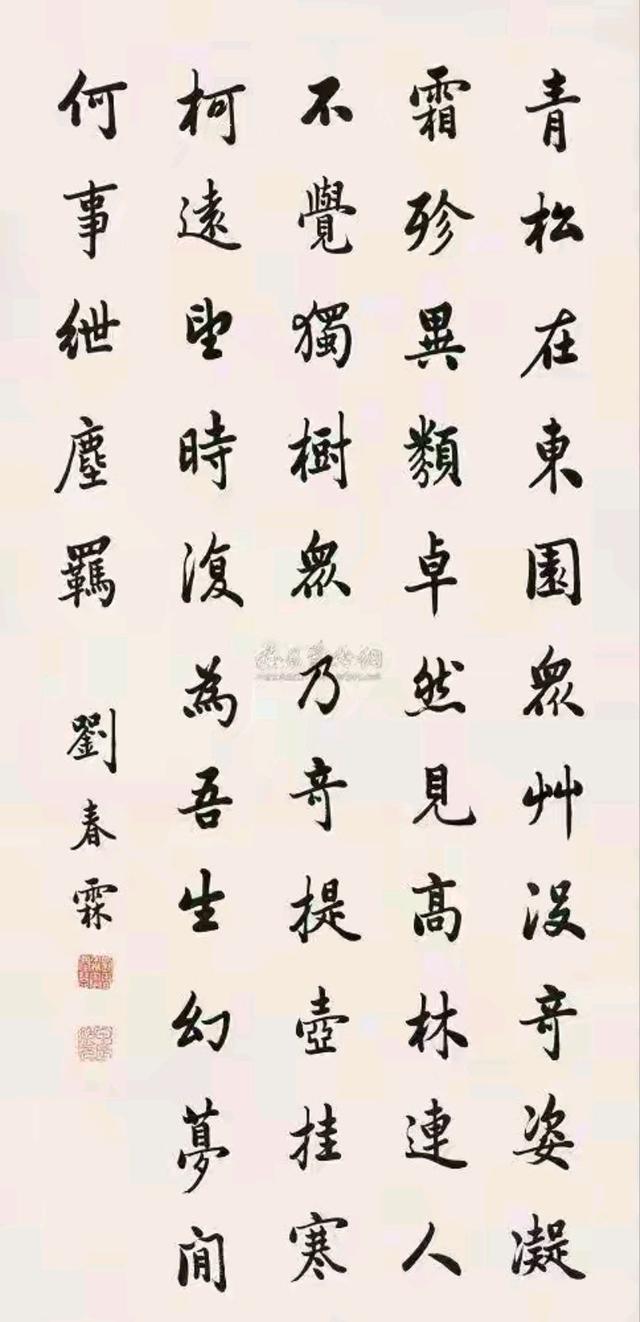 青松在東園眾艸沒奇姿凝
霜殄異類卓然見高林連人
不覺獨樹眾乃奇提壺挂寒
柯遠望時復為吾生幻夢間
何事紲塵羈
劉春霖